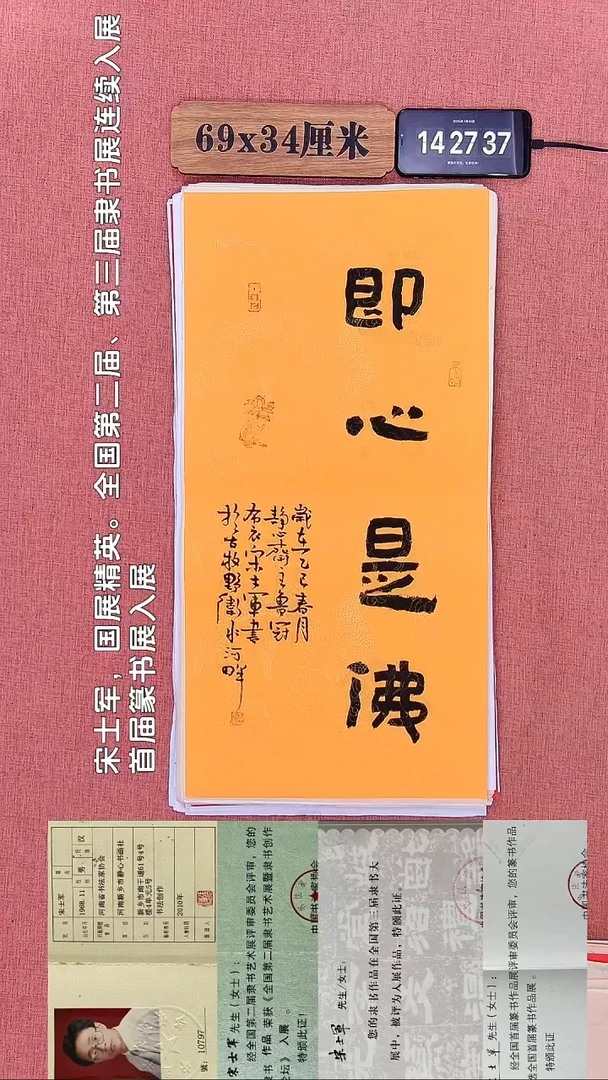 宋士军，国展精英。全国第二届、第三届隶书展连续入展
首届篆书展入展
69x34厘米
14 27 37
即心是佛
歲在乙巳春月
静心齋主魯冠
布衣宋士軍書
宋士军
1968.11
男
汉
河南省书法家协会
河南新乡市静心书画社
新乡市南干道81号4号
楼4单元5号
书法创作
2010年
号：10797
宋士军 先生（女士）：
经全国第二届隶书艺术展评审委员会评审，您的
隶书 作品 荣获《全国第二届隶书艺术展暨隶书创作
论坛》入展 。
特颁此证！
宋士军 先生/女士：
您的隶书作品在全国第三届隶书大
展中，被评为入展作品，特颁此证。
士军 先生（女士）：
经全国首届篆书作品展评审委员会评审，您的篆书作品
全国首届篆书作品展 。
特颁此证